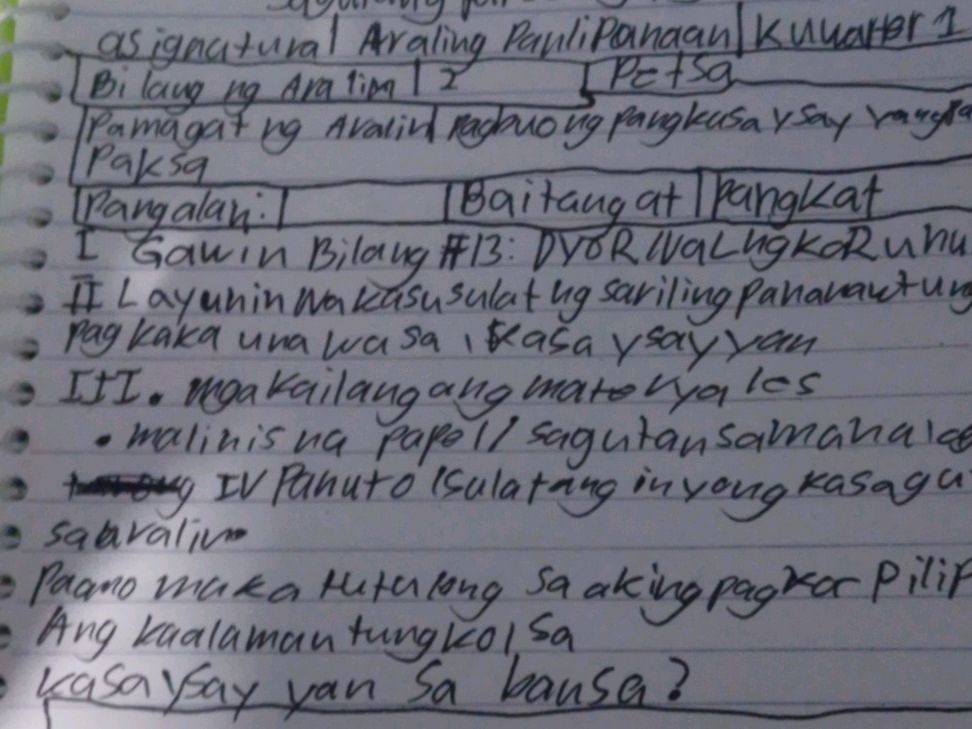 asignatura| Araling PanliPanaan| Kuwarter 1
Bilang ng Aralin | 2 | Petsa
Pamagat ng Aralin| pagbuo ng pangkasaysayyang
Paksa
Pangalan: | Baitang at | pangkat
I Gawin Bilang #13:
II Layunin Nakasusulat ng sariling
pagkaka unawa sa, Kasaysayyan
III. mga kailangang materyales
• malinis na papel // sagutan sa
IV Panuto Isulat ang inyong kasagu
sa aralin
Paano maka tutulong sa aking pagka Pilip
Ang kaalaman tungkol sa
kasaysayyan sa bansa?